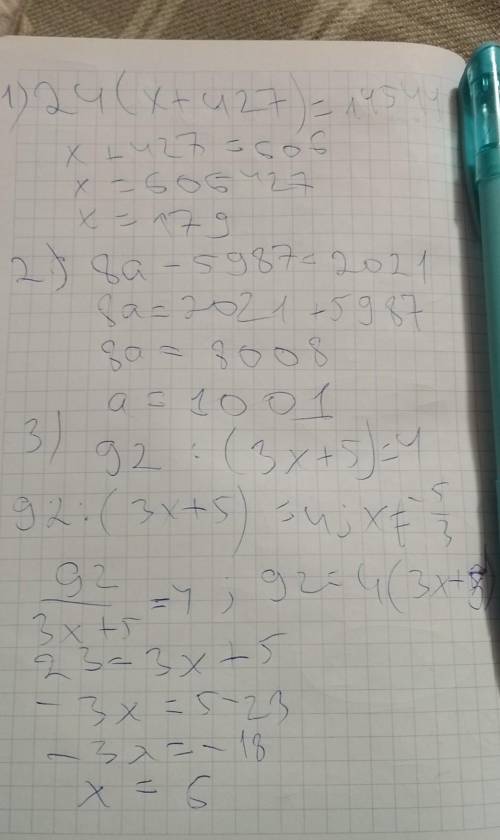 1) 24(x+427)=14544
x+427=606
x=606427
x=179
2) 8a-5987=2021
8a=2021+5987
8a=8008
a=1001
3)
92:(3x+5)=4
92:(3x+5)=4; x≠-5/3
92/3x+5=4; 92=4(3x+5)
23=3x+5
-3x=5-23
-3x=-18
x=6